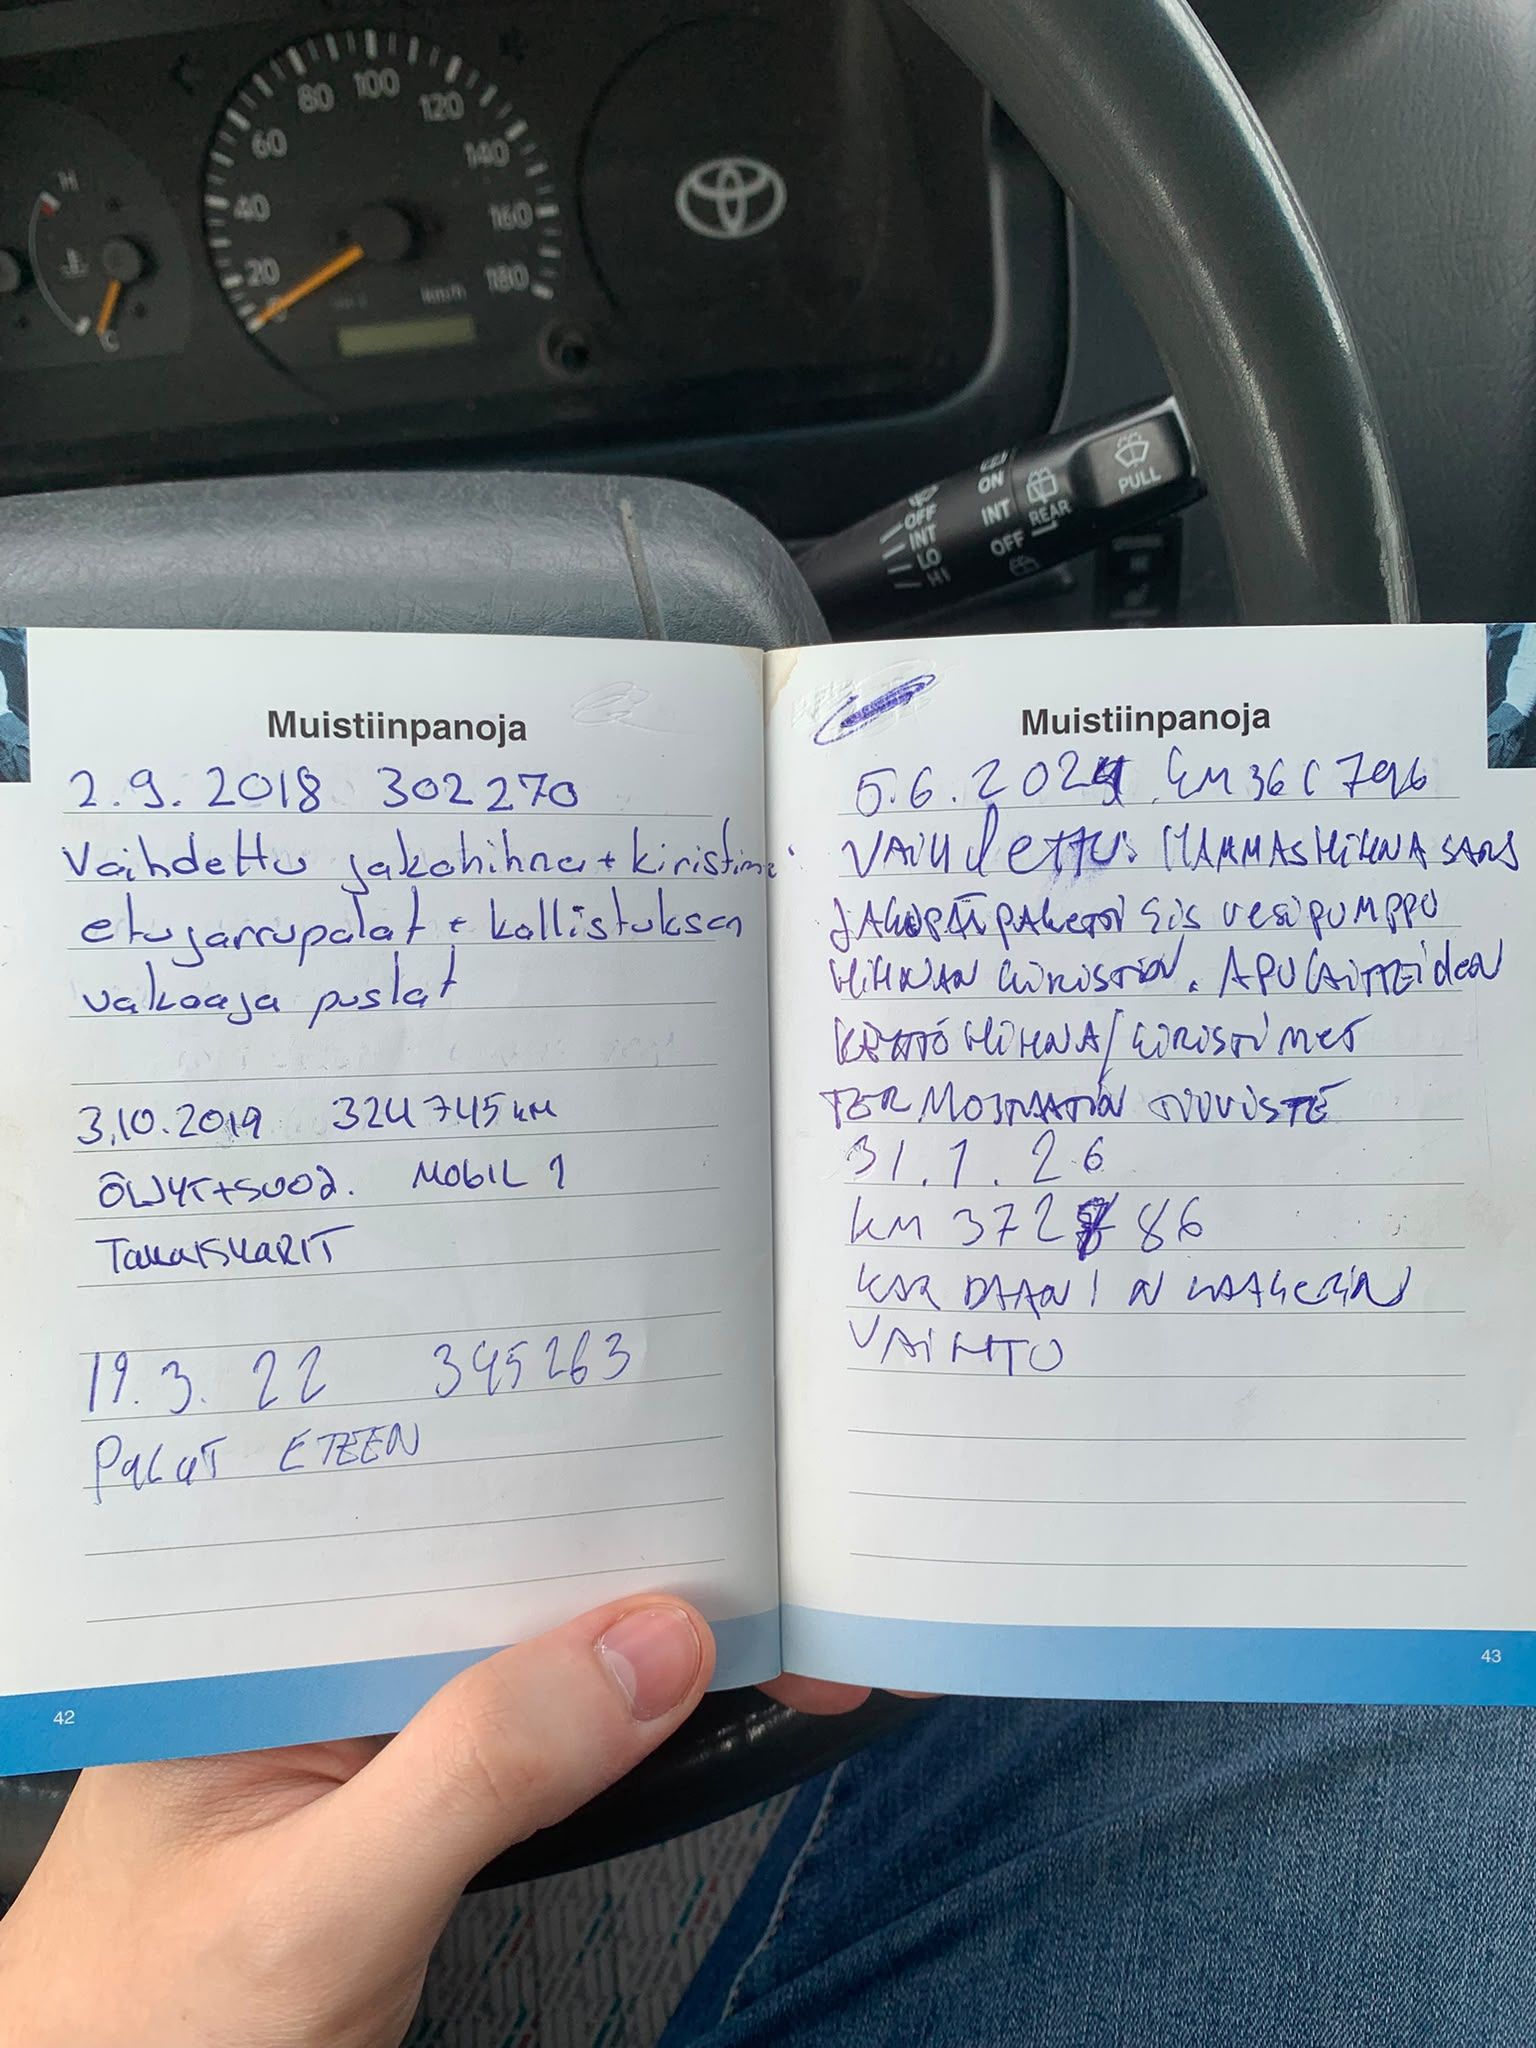 H
C
0
20
40
60
80
100
120
140
160
180
km/h
OFF
INT
LO
HI
ON
INT
OFF
REAR
PULL
Muistiinpanoja
2.9.2018 302270
Vaihdettu jakohihna + kiristin
etujarrupalat + kallistuksen
vakaaja puslat
3.10.2019 324745 KM
ÖLJYT+SUOD. MOBIL 1
TAKAISKARIT
19.3.22 345263
PALAT ETEEN
42
Muistiinpanoja
5.6.2024. KM 361796
VAIHdettu: HAMMASHIHNA SARJ
JAKOPÄÄPAKETTI SIS VESIPUMPPO
HIHNAN KIRISTIN. APULAITTEIdEN
KÄYTTÖHIHNA/KIRISTIMET
TERMOSTAATIN TIIVISTE
31.1.26
KM 372 86
KARDAANIN LAAKERIN
VAIHTO
43